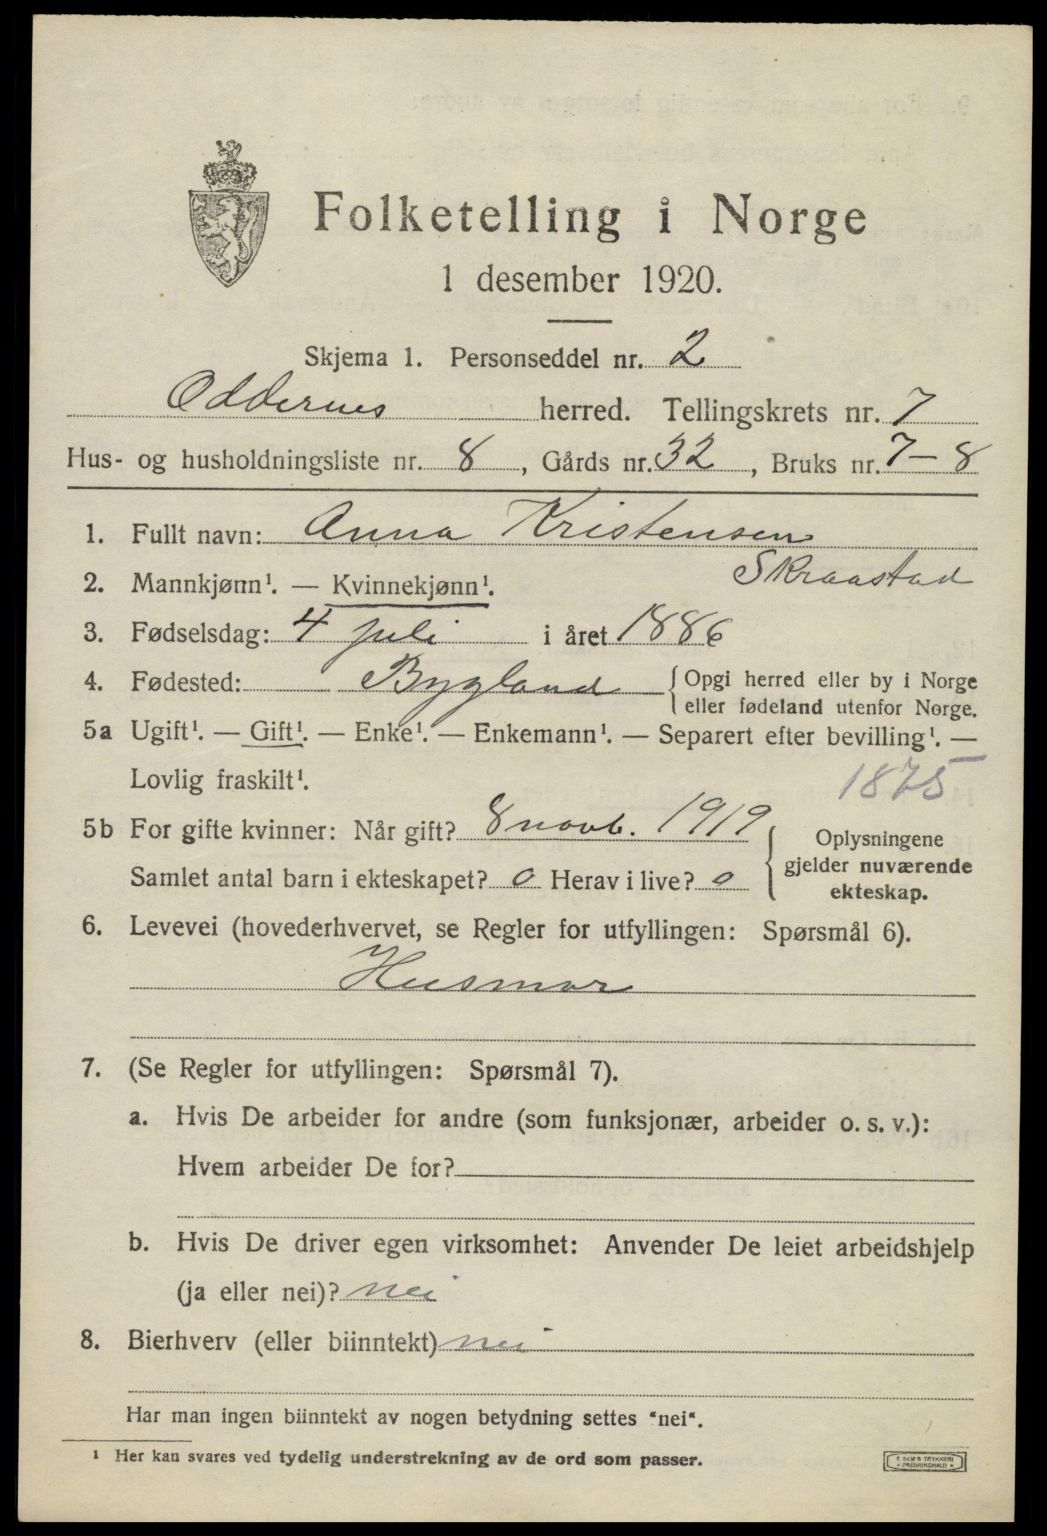 Folketelling i Norge
1 desember 1920.
Skjema 1. Personseddel nr. 2
Oddernes herred. Tellingskrets nr. 7
Hus- og husholdningsliste nr. 8, Gårds nr. 32, Bruks nr. 7-8
1. Fullt navn: Anna Kristensen
Skraastad
2. Mannkjønn¹. — Kvinnekjønn¹.
3. Fødselsdag: 4 juli i året 1886
4. Fødested: Bygland { Opgi herred eller by i Norge
eller fødeland utenfor Norge.
5a Ugift¹. — Gift¹. — Enke¹. — Enkemann¹. — Separert efter bevilling¹. —
Lovlig fraskilt¹.
1875
5b For gifte kvinner: Når gift? 8 novb. 1919
Samlet antal barn i ekteskapet? 0 Herav i live? 0
{ Oplysningene
gjelder nuværende
ekteskap.
6. Levevei (hovederhvervet, se Regler for utfyllingen: Spørsmål 6).
Husmor
7. (Se Regler for utfyllingen: Spørsmål 7).
a. Hvis De arbeider for andre (som funksjonær, arbeider o. s. v.):
Hvem arbeider De for?
b. Hvis De driver egen virksomhet: Anvender De leiet arbeidshjelp
(ja eller nei)? nei
8. Bierhverv (eller biinntekt) nei
Har man ingen biinntekt av nogen betydning settes "nei".
¹ Her kan svares ved tydelig understrekning av de ord som passer.